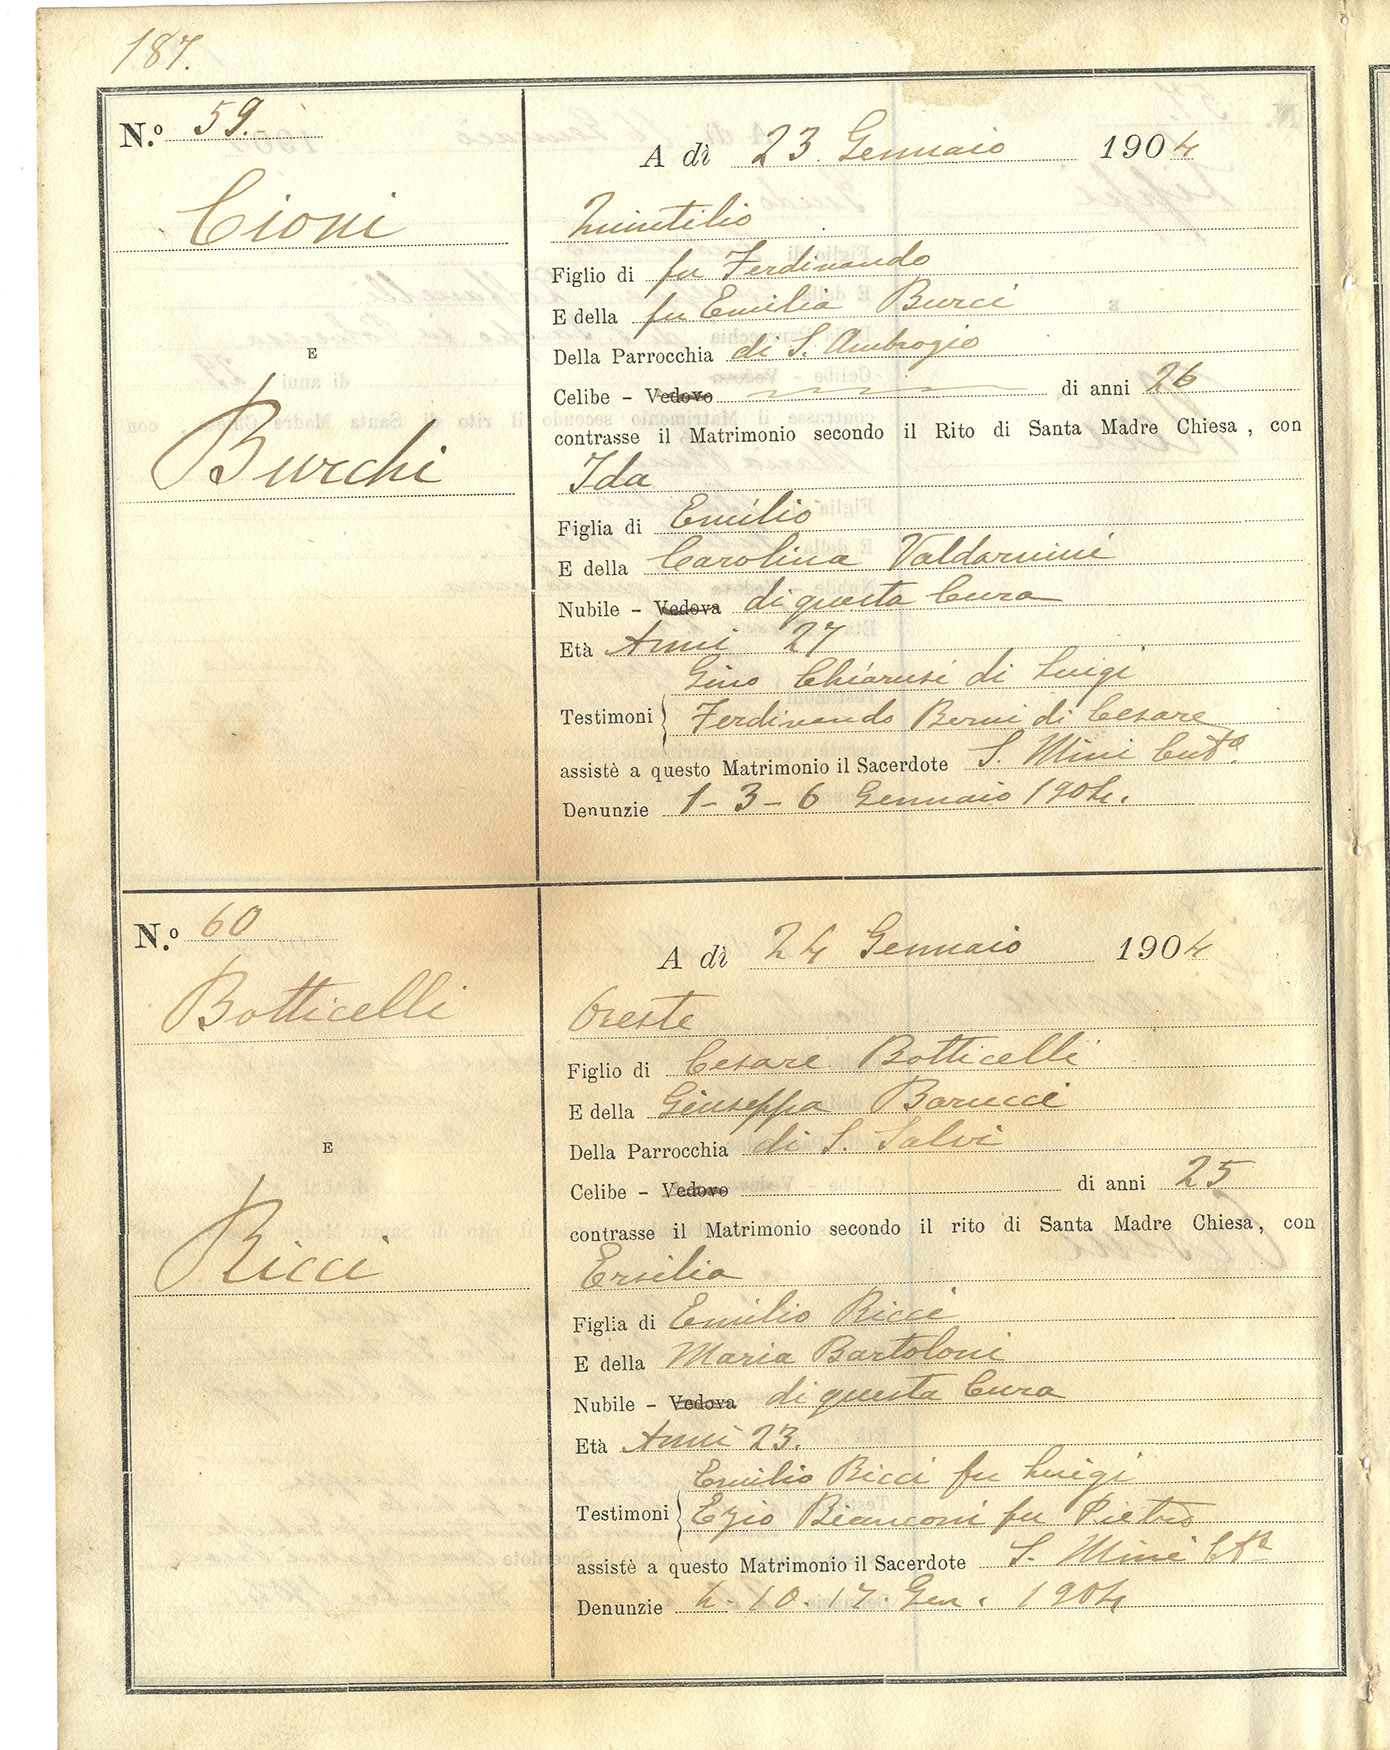 187.
N.º 59.
Cioni
E
Burchi
A dì 23 Gennaio 1904
Quintilio
Figlio di fu Ferdinando
E della fu Emilia Burci
Della Parrocchia di S. Ambrogio
Celibe - Vedovo di anni 26
contrasse il Matrimonio secondo il Rito di Santa Madre Chiesa, con
Ida
Figlia di Emilio
E della Carolina Valdarnini
Nubile - Vedova di questa Cura
Età Anni 27
Gino Chiarusi di Luigi
Testimoni Ferdinando Berni di Cesare
assistè a questo Matrimonio il Sacerdote S. Mini
Denunzie 1 - 3 - 6 Gennaio 1904.
N.º 60
Botticelli
E
Ricci
A dì 24 Gennaio 1904
Oreste
Figlio di Cesare Botticelli
E della Giuseppa Barucci
Della Parrocchia di S. Salvi
Celibe - Vedovo di anni 25
contrasse il Matrimonio secondo il rito di Santa Madre Chiesa, con
Ersilia
Figlia di Emilio Ricci
E della Maria Bartoloni
Nubile - Vedova di questa Cura
Età Anni 23.
Emilio Ricci fu Luigi
Testimoni Ezio Bianconi fu Pietro
assistè a questo Matrimonio il Sacerdote S. Mini
Denunzie 4. 10. 17. Gen. 1904